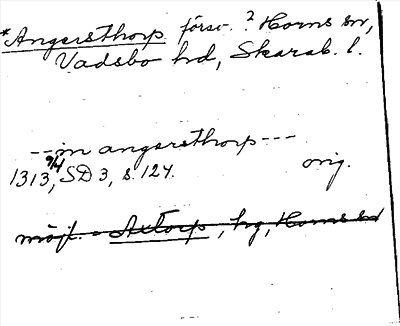 *Angersthorp försv. ? Horns sn,
Vadsbo hd, Skarab. l.
--- in angersthorp ---
1313 9/4, SD 3, s. 124. orig.
möjl. = Axtorp, hg, Horns sn